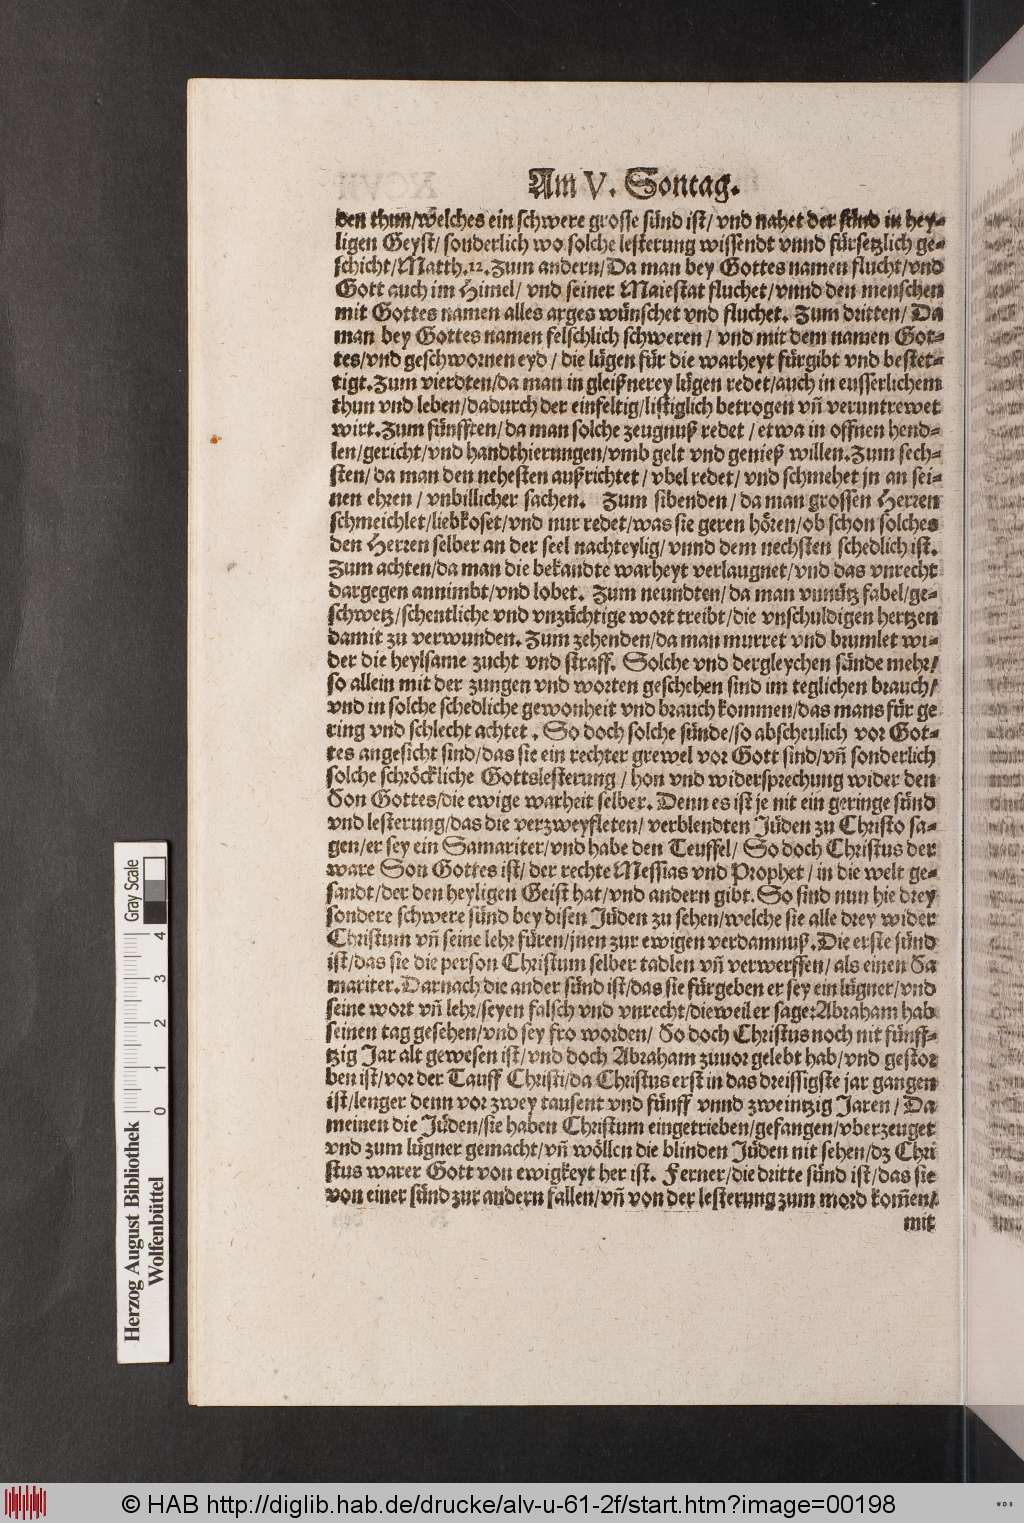 Am V. Sontag.
den thun/welches ein schwere grosse sünd ist/ vnd nahet der sünd in hey-
ligen Geyst/ sonderlich wo solche lesterung wissendt vnnd fürsetzlich ge-
schicht/Matth.12.Zum andern/Da man bey Gottes namen flucht/vnd
Gott auch im Himel/ vnd seiner Maiestat fluchet/vnnd den menschen
mit Gottes namen alles arges wünschet vnd fluchet. Zum dritten/ Da
man bey Gottes namen felschlich schweren / vnd mit dem namen Got-
tes/vnd geschwornen eyd / die lügen für die warheyt fürgibt vnd bestet-
tigt.Zum vierdten/da man in gleißnerey lügen redet/auch in eusserlichem
thun vnd leben/dadurch der einfeltig/listiglich betrogen vñ veruntrewet
wirt.Zum fünfften/da man solche zeugnuß redet / etwa in offnen hend-
len/gericht/vnd handthierungen/vmb gelt vnd genieß willen.Zum sech-
sten/da man den nehesten außrichtet / vbel redet/ vnd schmehet jn an sei-
nen ehren / vnbillicher sachen. Zum sibenden / da man grossen Herren
schmeichlet/liebkoset/vnd nur redet/was sie geren hören/ob schon solches
den Herren selber an der seel nachteylig/vnnd dem nechsten schedlich ist.
Zum achten/da man die bekandte warheyt verlaugnet/vnd das vnrecht
dargegen annimbt/vnd lobet. Zum neundten/da man vnnütz fabel/ge-
schwetz/schentliche vnd vnzüchtige wort treibt/die vnschuldigen hertzen
damit zu verwunden. Zum zehenden/da man murret vnd brumlet wi-
der die heylsame zucht vnd straff. Solche vnd dergleychen sünde mehr/
so allein mit der zungen vnd worten geschehen sind im teglichen brauch/
vnd in solche schedliche gewonheit vnd brauch kommen/das mans für ge
ring vnd schlecht achtet . So doch solche sünde/so abscheulich vor Got-
tes angesicht sind/das sie ein rechter grewel vor Gott sind/vñ sonderlich
solche schröckliche Gottslesterung / hon vnd widersprechung wider den
Son Gottes/die ewige warheit selber. Denn es ist je nit ein geringe sünd
vnd lesterung/das die verzweyfleten/ verblendten Jüden zu Christo sa-
gen/er sey ein Samariter/vnd habe den Teuffel/ So doch Christus der
ware Son Gottes ist/ der rechte Messias vnd Prophet / in die welt ge-
sandt/der den heyligen Geist hat/vnd andern gibt.So sind nun hie drey
sondere schwere sünd bey disen Jüden zu sehen/welche sie alle drey wider
Christum vñ seine lehr füren/jnen zur ewigen verdamnuß.Die erste sünd
ist/das sie die person Christum selber tadlen vñ verwerffen/ als einen Sa
mariter.Darnach die ander sünd ist/das sie fürgeben er sey ein lügner/vnd
seine wort vñ lehr/seyen falsch vnd vnrecht/dieweil er sage:Abraham hab
seinen tag gesehen/vnd sey fro worden/ So doch Christus noch nit fünff-
tzig Jar alt gewesen ist/vnd doch Abraham zuuor gelebt hab/vnd gestor
ben ist/vor der Tauff Christi/da Christus erst in das dreissigste jar gangen
ist/lenger denn vor zwey tausent vnd fünff vnnd zweintzig Jaren / Da
meinen die Jüden/sie haben Christum eingetrieben/gefangen/vberzeuget
vnd zum lügner gemacht/vñ wöllen die blinden Jüden nit sehen/dz Chri
stus warer Gott von ewigkeyt her ist. Ferner/die dritte sünd ist/das sie
von einer sünd zur andern fallen/vñ von der lesterung zum mord kom̃en/
mit
Gray Scale
0 1 2 3 4
Herzog August Bibliothek
Wolfenbüttel
© HAB http://diglib.hab.de/drucke/alv-u-61-2f/start.htm?image=00198